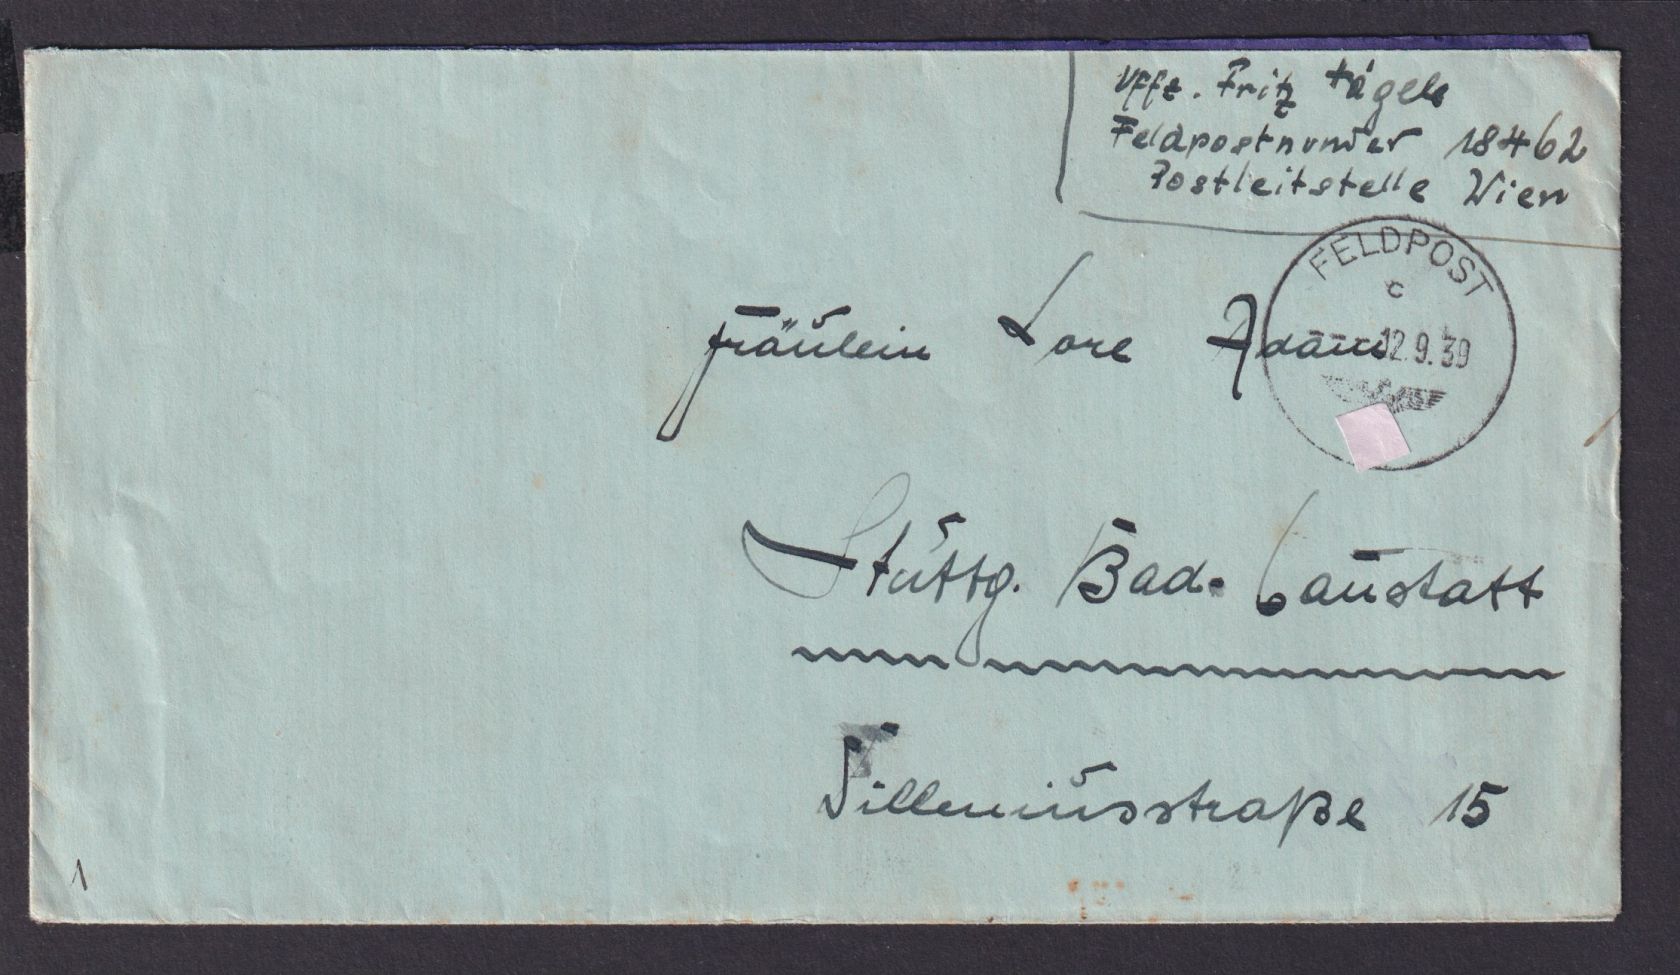 Uffz. Fritz Hägele
Feldpostnummer 18462
Postleitstelle Wien
FELDPOST
c
12.9.39
Fräulein Lore Adam
Stuttg. Bad. Canstatt
Silleniusstraße 15
1